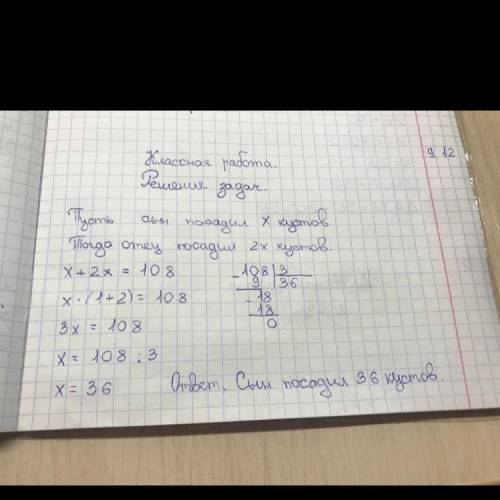 9 12
Классная работа.
Решения задач.
Пусть сын посадил x кустов
Тогда отец посадил 2x кустов.
x + 2x = 108
x · (1+2) = 108
3x = 108
x = 108 : 3
x = 36
-108 | 3
9 | 36
-18
18
0
Ответ. Сын посадил 36 кустов.